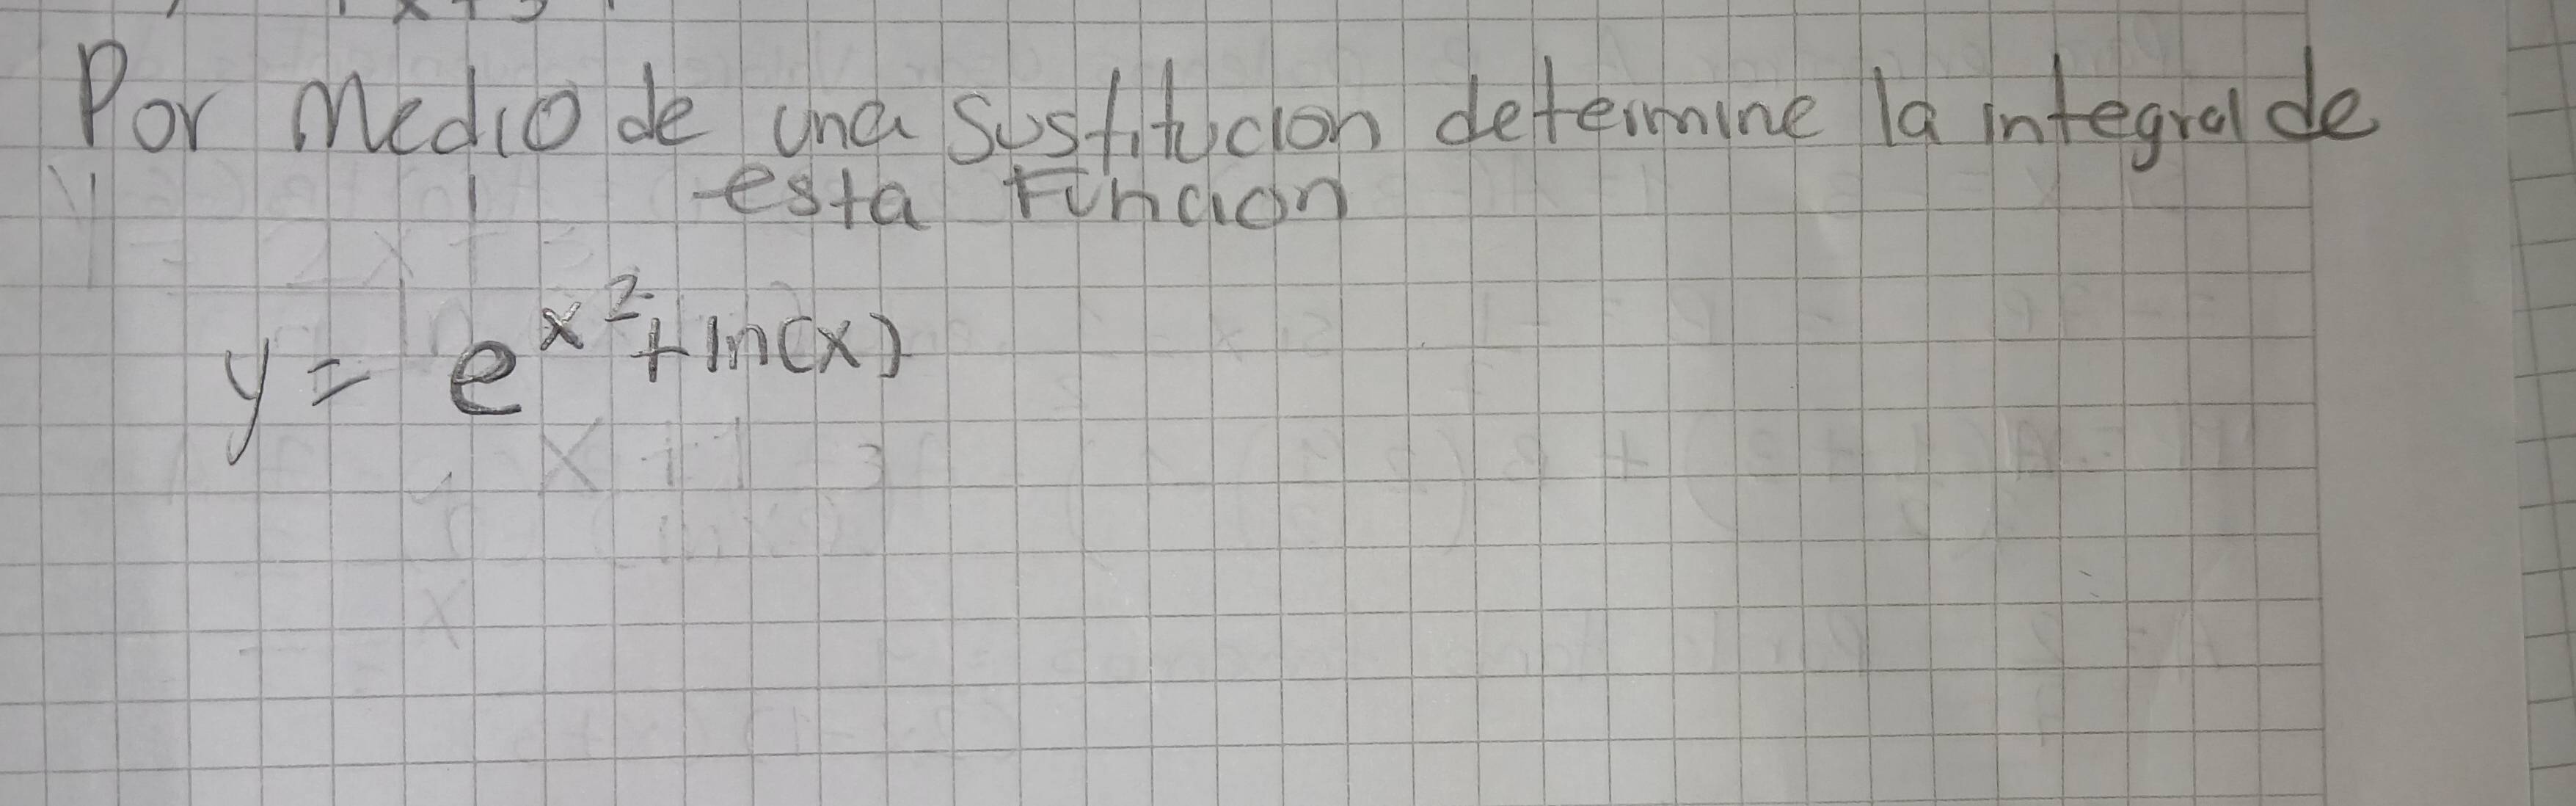 Por Medio de una sustitucion determine la integral de
esta Funcion
y = e^{x^2 + ln(x)}